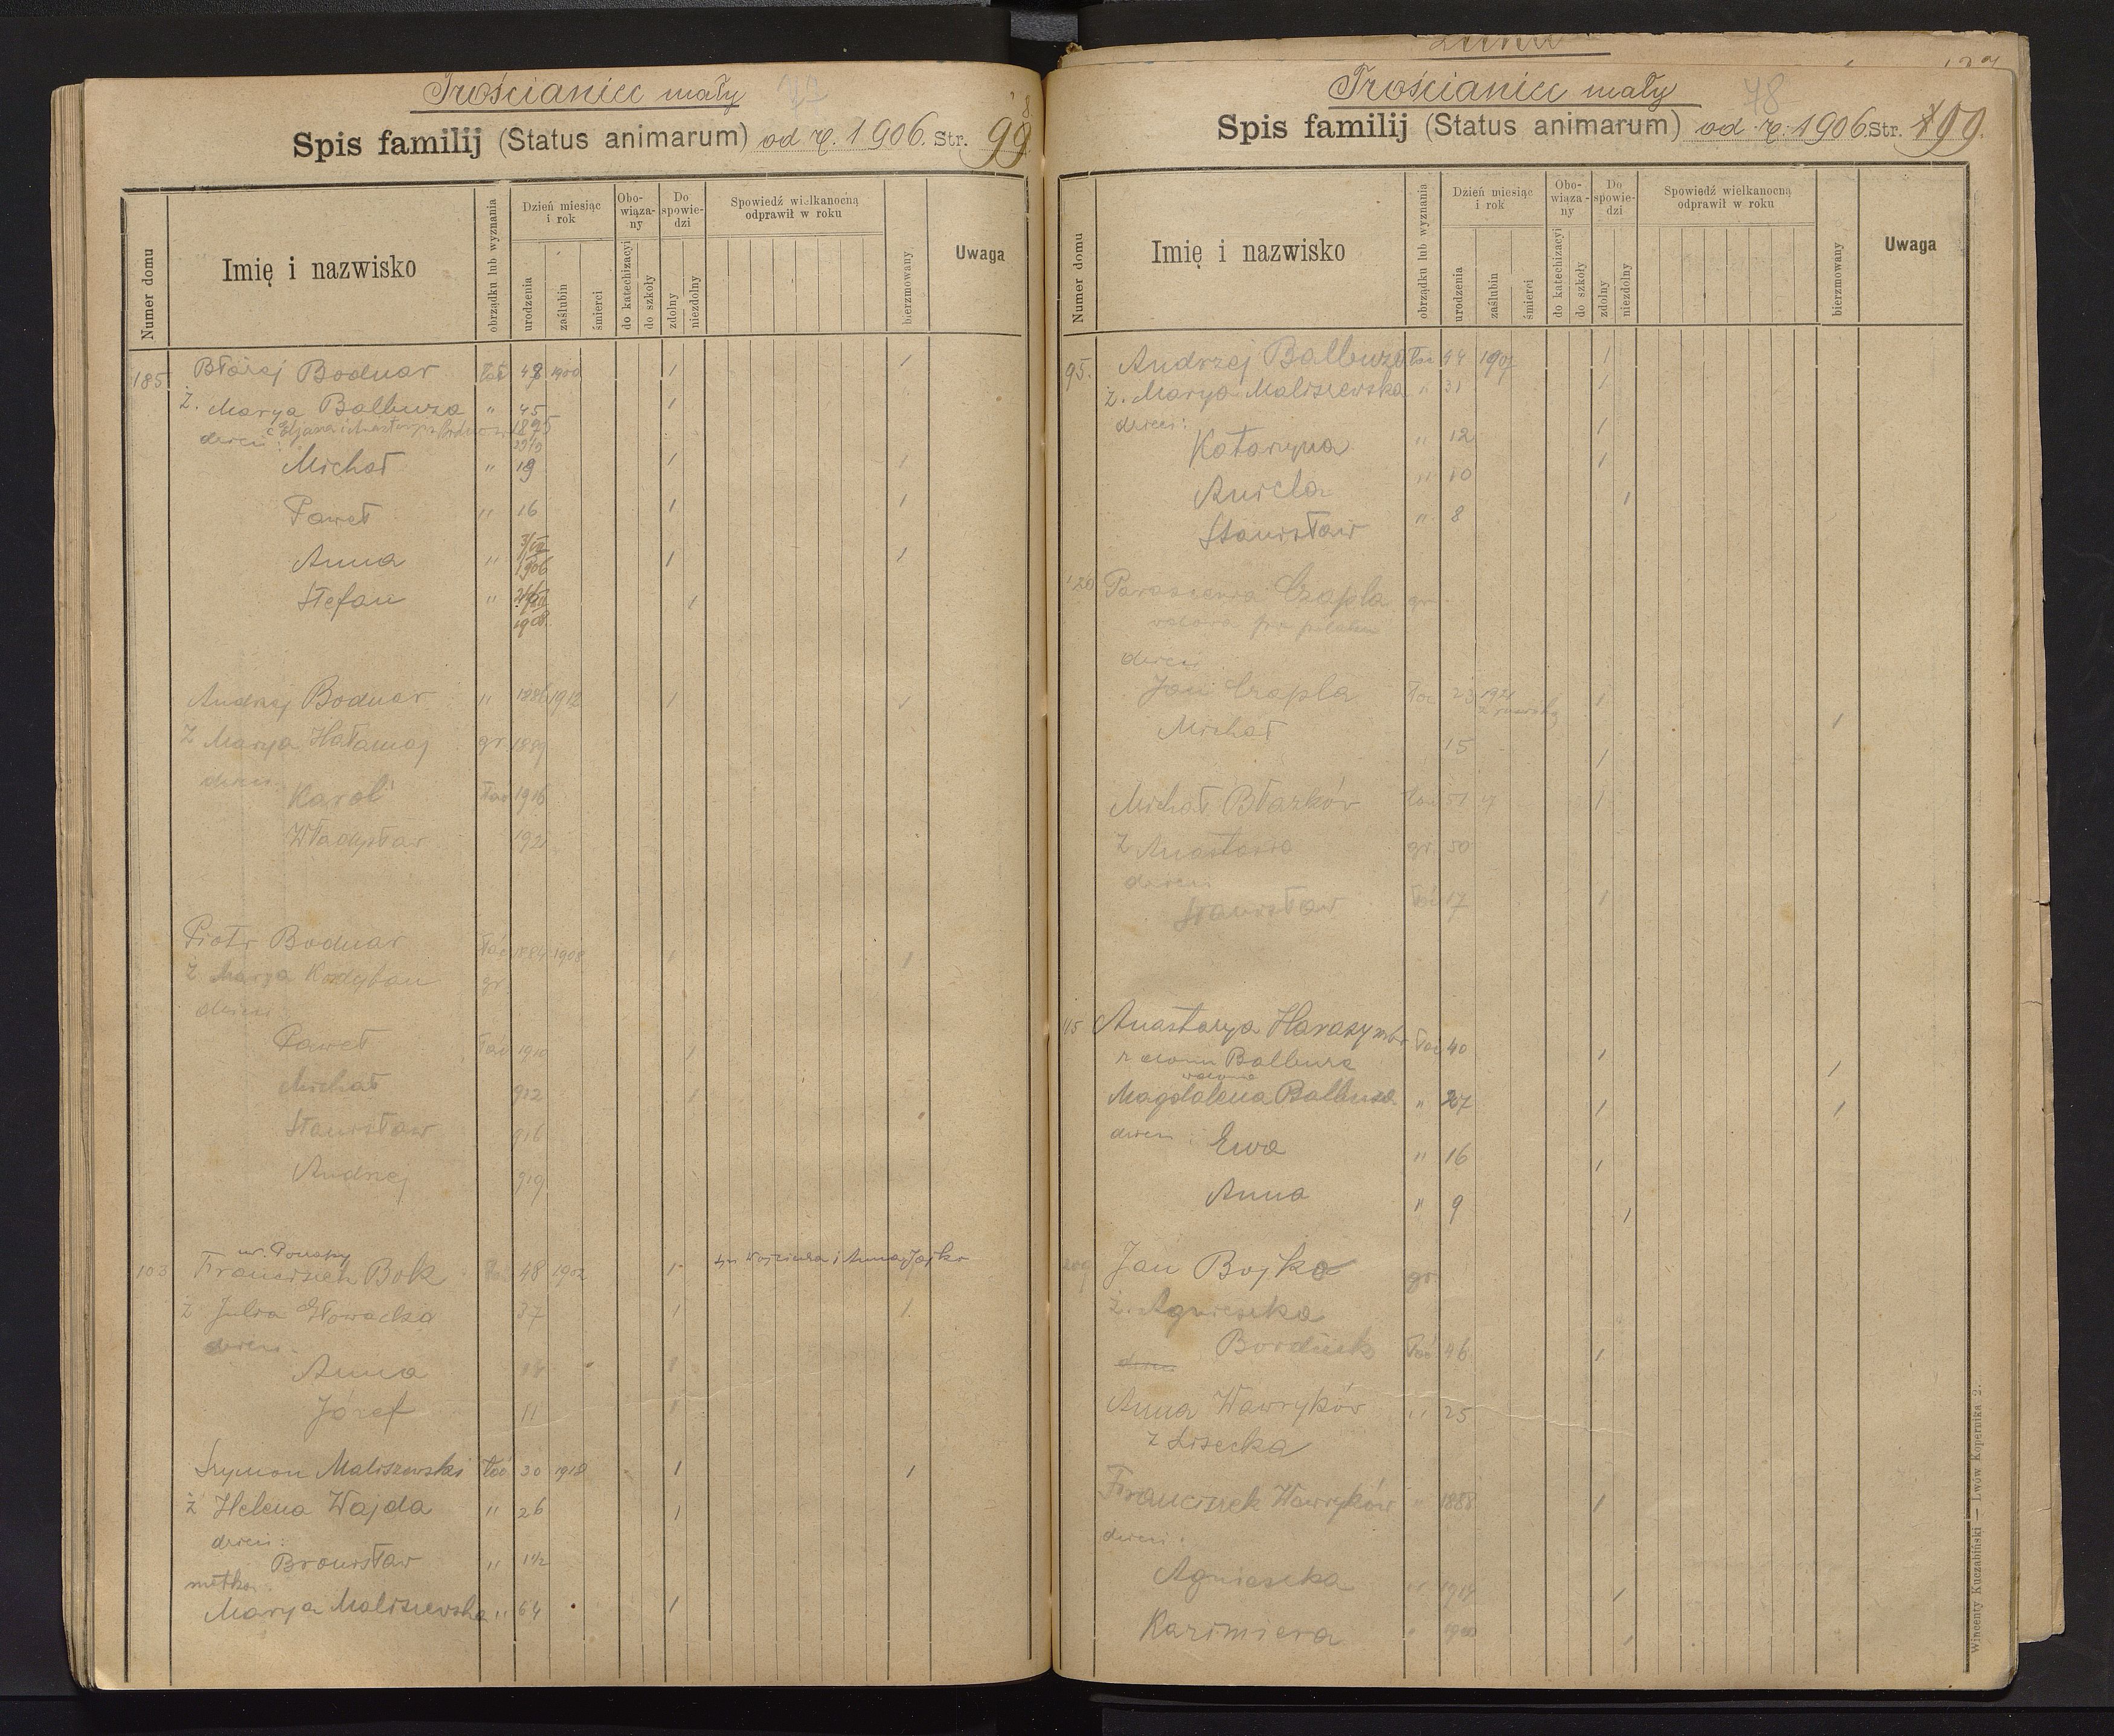 Trościaniec mały
Spis familij (Status animarum) od r. 1906. Str. 99
Numer domu
Imię i nazwisko
obrządku lub wyznania
Dzień miesiąc i rok
urodzenia
zaślubin
śmierci
Obo-wiąza-ny
do katechizacyi
do szkoły
Do spowie-dzi
zdolny
niezdolny
Spowiedź wielkanocną odprawił w roku
bierzmowany
Uwaga
185 Błażej Bodnar łać 48 1900 1 1
ż. Marya Balbuza " 45 1
dzieci: 1895
Michał " 19 1 1
Paweł " 16 1 1
Anna " 1906 1 1
Stefan " 1908 1
Andrzej Bodnar " 1886 1912 1 1
ż Marya Hałamaj gr 1889
dzieci
Karol łać 1916
Władysław 1921
Piotr Bodnar łać 1884 1908 1 1
ż Marya Kodyban gr.
dzieci
Paweł łać 1910 1
Michał 912 1
Stanisław 916
Andrzej 919
ur. Potraky
103 Franciszek Bok łać 48 1902 1 syn Wojciecha i Anny Jajko
ż Julia Głowacka 37 1 1
dzieci
Anna 14 1
Józef 11 1
Szymon Maliszewski łać 30 1918 1 1
ż Helena Wajda " 26 1
dzieci:
Bronisław " 1 1/2
matka
Marya Maliszewska " 64 1
Trościaniec mały 48
Spis familij (Status animarum) od r. 1906. Str. 199.
Numer domu
Imię i nazwisko
obrządku lub wyznania
Dzień miesiąc i rok
urodzenia
zaślubin
śmierci
Obo-wiąza-ny
do katechizacyi
do szkoły
Do spowie-dzi
zdolny
niezdolny
Spowiedź wielkanocną odprawił w roku
bierzmowany
Uwaga
95. Andrzej Balbuza łać 44 1907 1
ż. Marya Maliszewska " 31 1
dzieci:
Katarzyna " 12 1
Aniela " 10 1
Stanisław " 8 1
120 Paraskewia Czapla gr
dzieci
Jan Czapla łać 23 1921 1
Michał 15 1 1
Michał Błazków łać 51 1
ż Anastazia gr. 50
dzieci
Stanisław łać 17 1
115 Anastazya Harasym łać 40 1 1
z domu Balbuza
wdowa
Magdalena Balbuza " 27 1 1
dzieci: Ewa " 16 1
Anna " 9 1
209 Jan Bojko gr.
ż. Agnieszka
Borduch łać 46 1
dzieci
Anna Wawryków " 25
z Lisecka
Franciszek Wawryków " 1888 1
dzieci:
Agnieszka " 1919 1
Kazimiera " 1
Wincenty Kuczabiński — Lwów Kopernika 2.